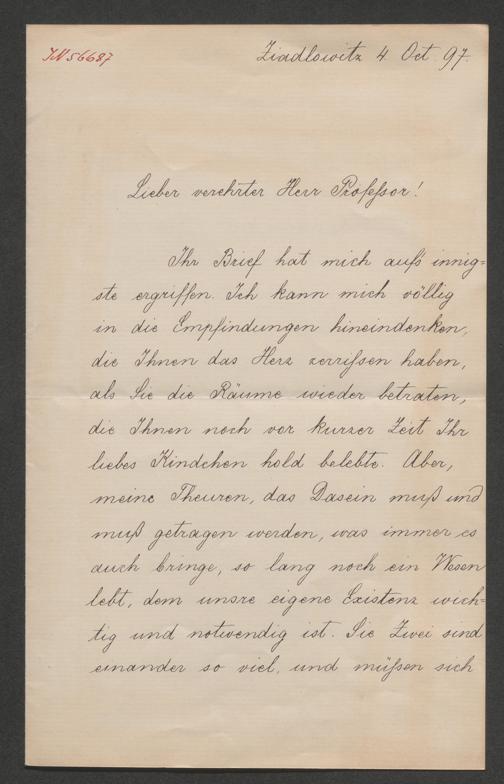 IN 56687
Ziadlowitz 4. Oct. 97.
Lieber verehrter Herr Professor!
Ihr Brief hat mich aufs innig=
ste ergriffen. Ich kann mich völlig
in die Empfindungen hineindenken,
die Ihnen das Herz zerrissen haben,
als Sie die Räume wieder betraten,
die Ihnen noch vor kurzer Zeit Ihr
liebes Kindchen hold belebte. Aber,
meine Theuren, das Dasein muß und
muß getragen werden, was immer es
auch bringe, so lang noch ein Wesen
lebt, dem unsre eigene Existenz wich=
tig und notwendig ist. Sie Zwei sind
einander so viel, und müssen sich